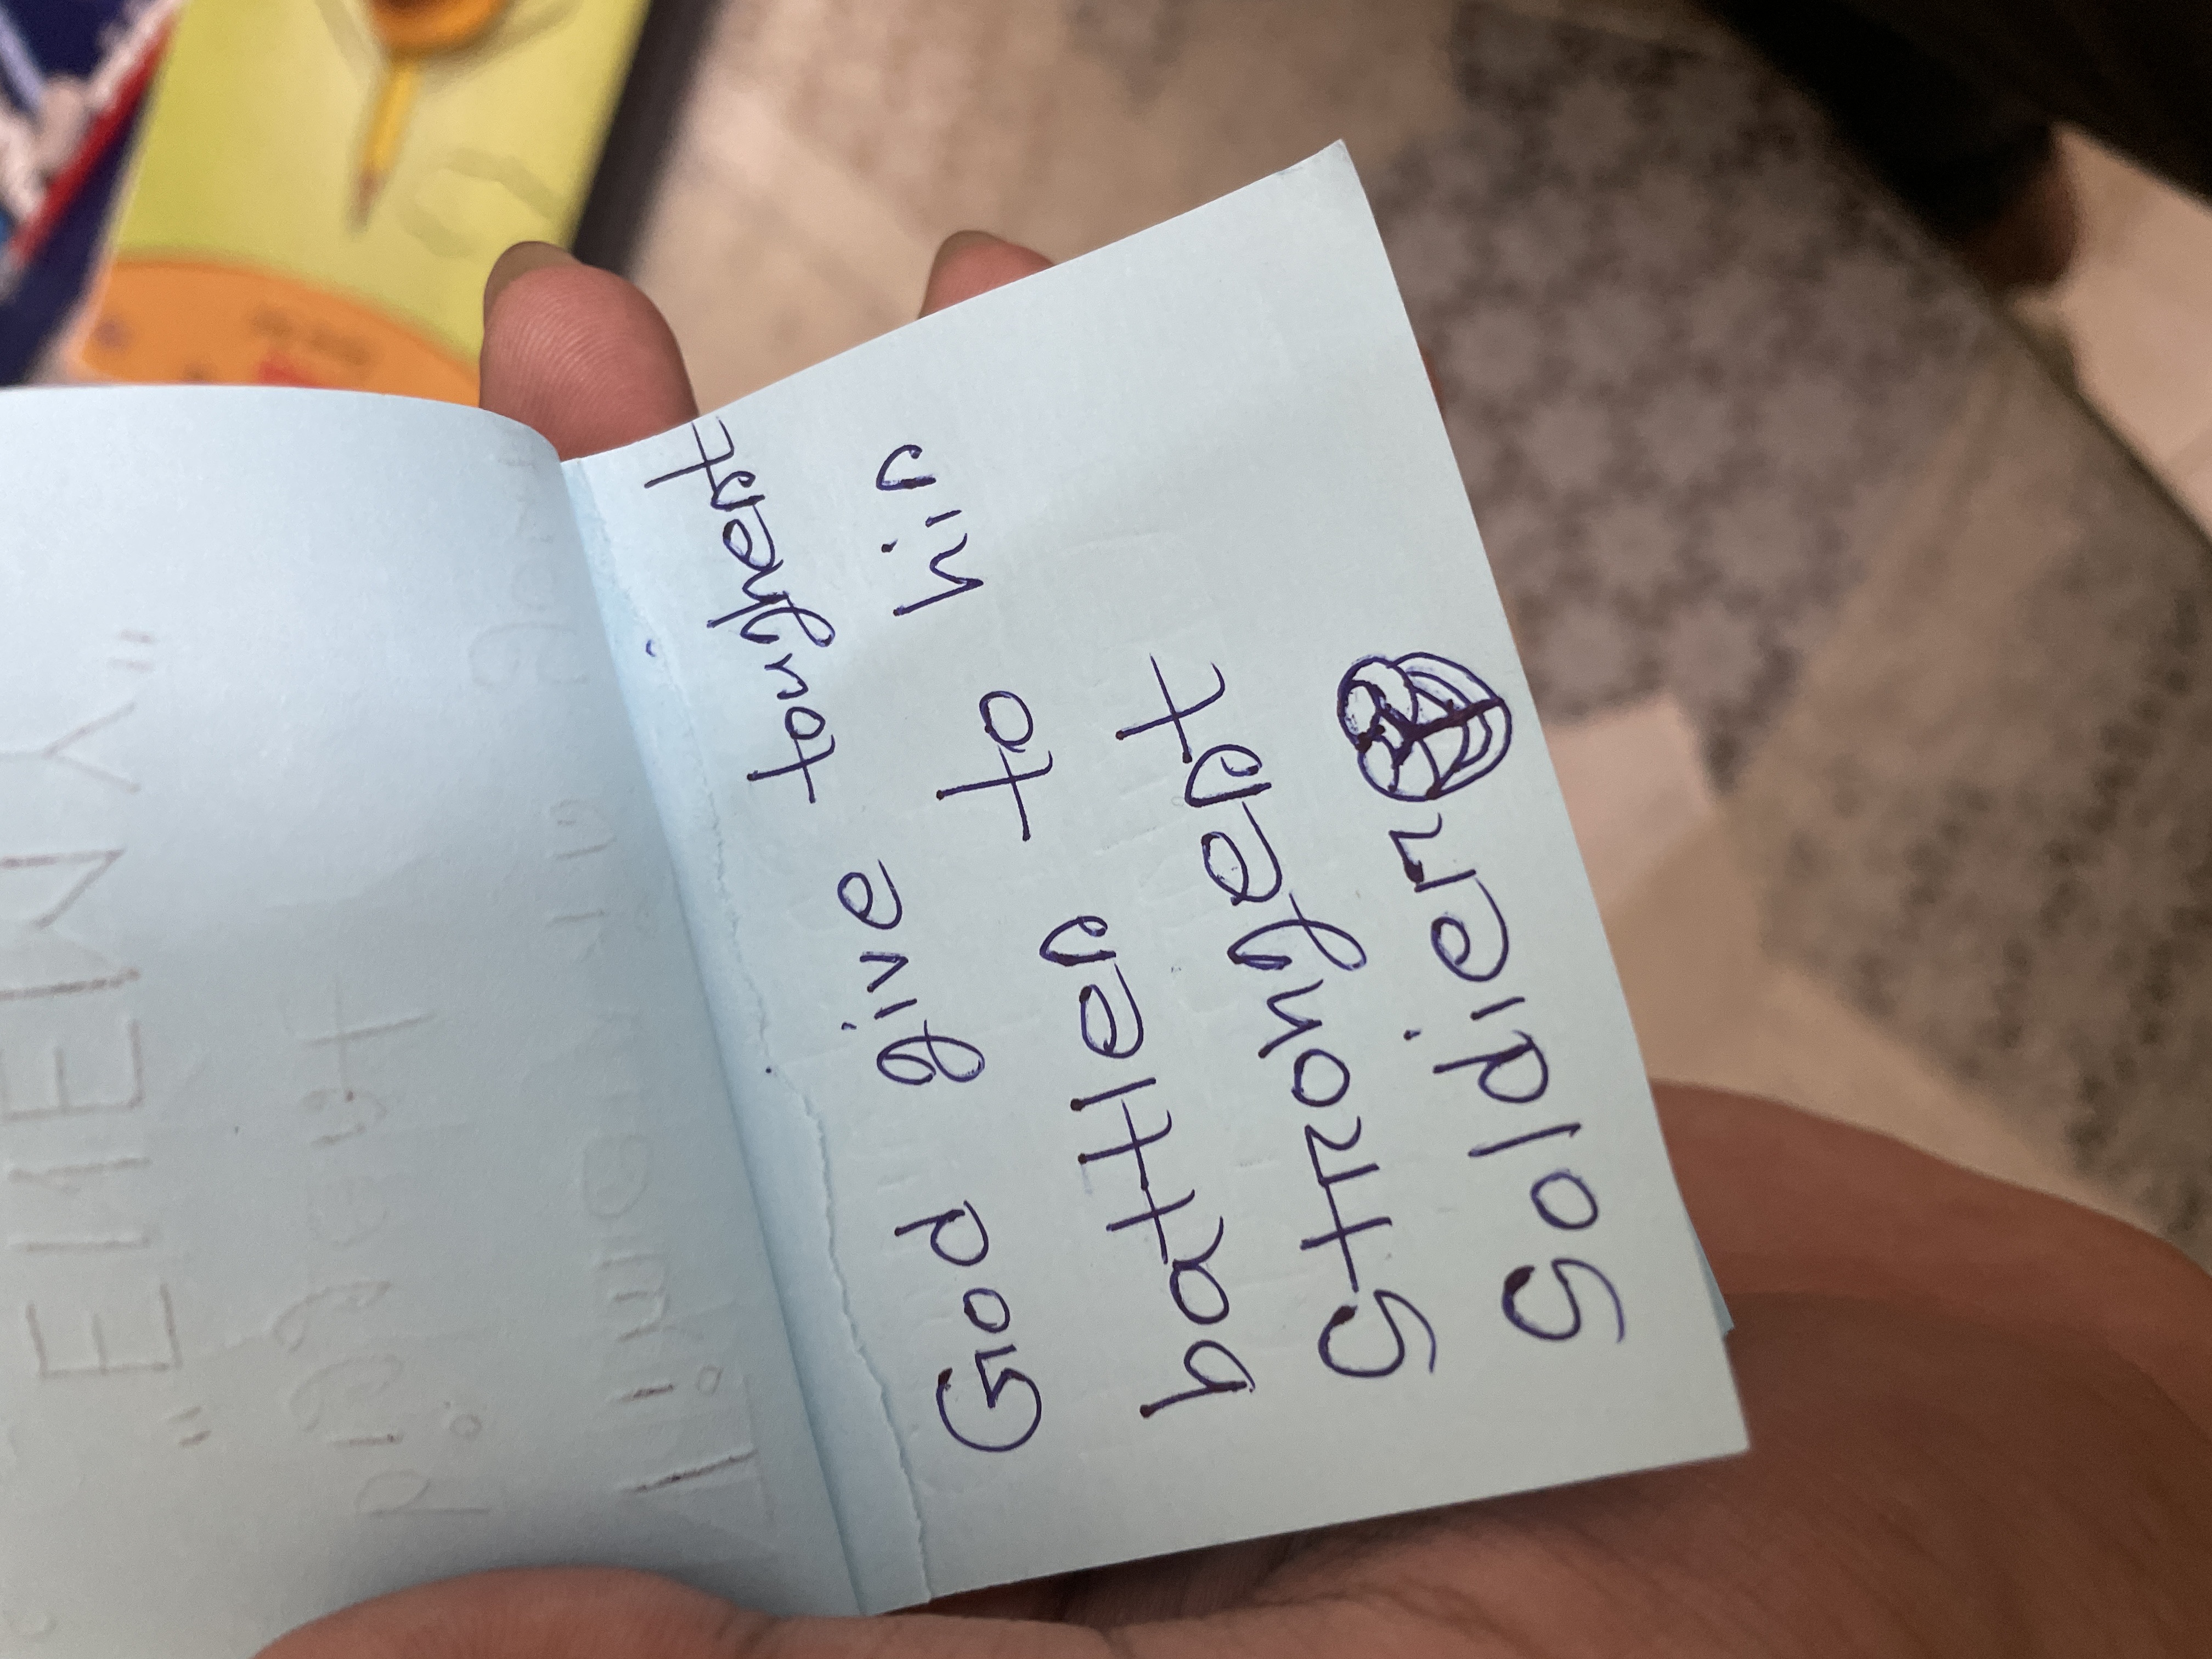 "ENEMY"
God give toughest
battles to his
strongest
Soldier